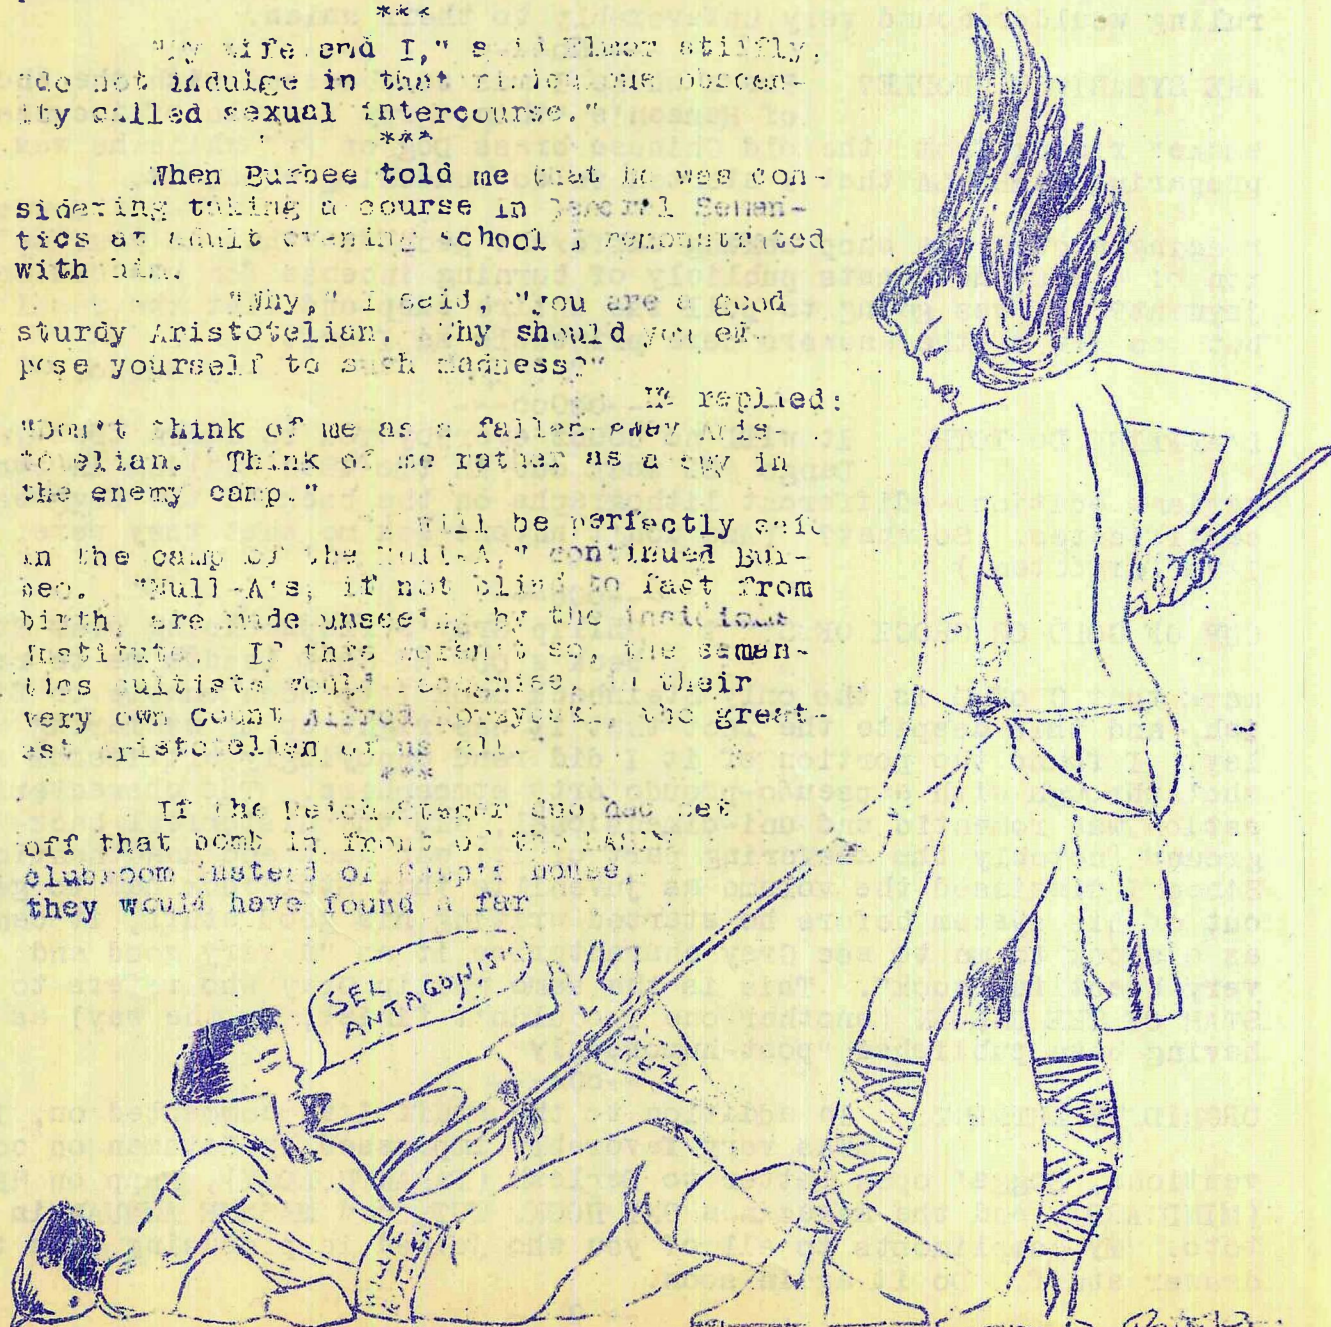 ***
"My wife and I," said Elmer stiffly,
"do not indulge in that ridiculous obscen-
ity called sexual intercourse."
***
When Burbee told me that he was con-
sidering taking a course in General Seman-
tics at adult evening school I remonstrated
with him.
"Why," I said, "you are a good
sturdy Aristotelian. Why should you ex-
pose yourself to such madness?"
He replied:
"Don't think of me as a fallen-away Aris-
totelian. Think of me rather as a spy in
the enemy camp."
will be perfectly safe
in the camp of the Null-A," continued Bur-
bee. "Null-A's, if not blind to fact from
birth, are made unseeing by the insidious
Institute. If this weren't so, the seman-
tics cultists would recognise, in their
very own Count Alfred Korzybski, the great-
est Aristotelian of us all."
***
If the Reich-Stager duo had set
off that bomb in front of the LASFS
clubroom instead of house,
they would have found a far
SEL
ANTAGONISM!